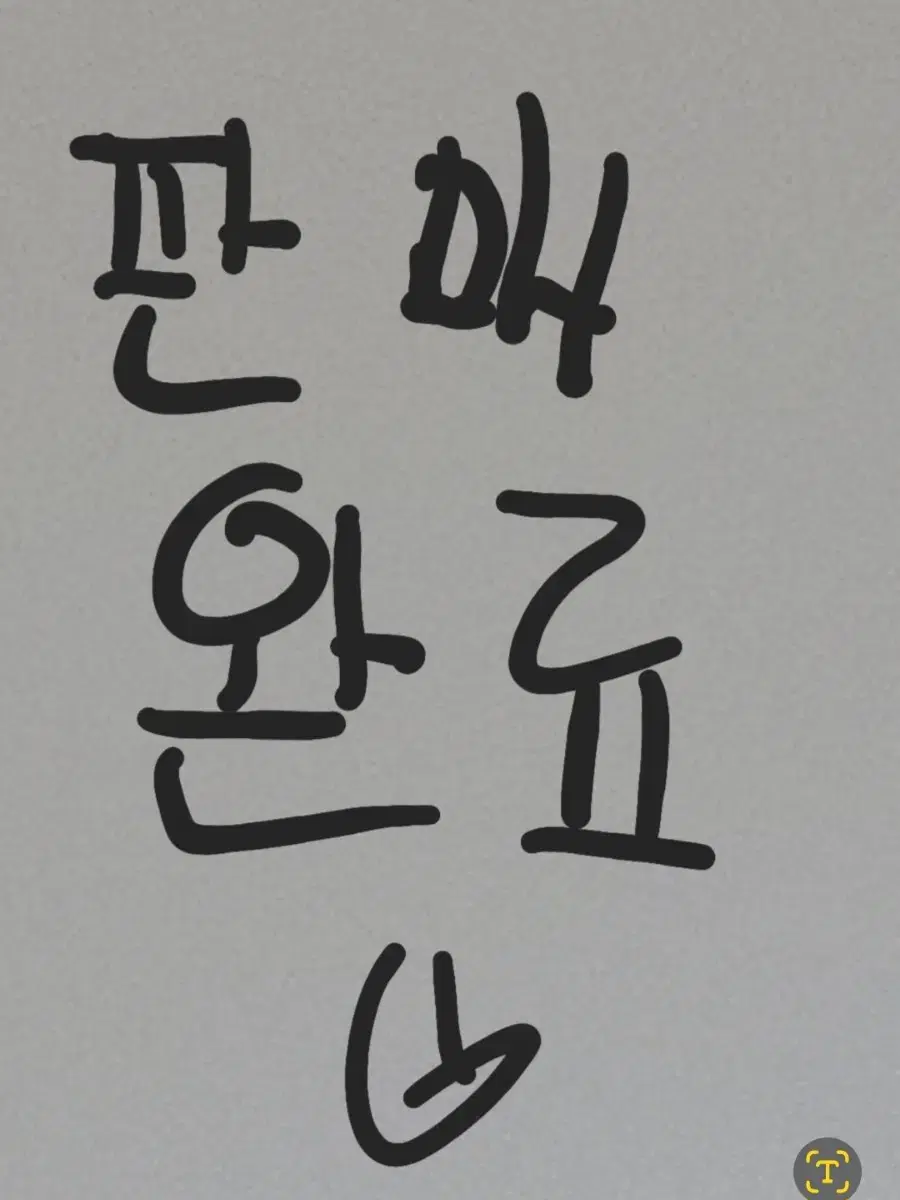 판매
완료